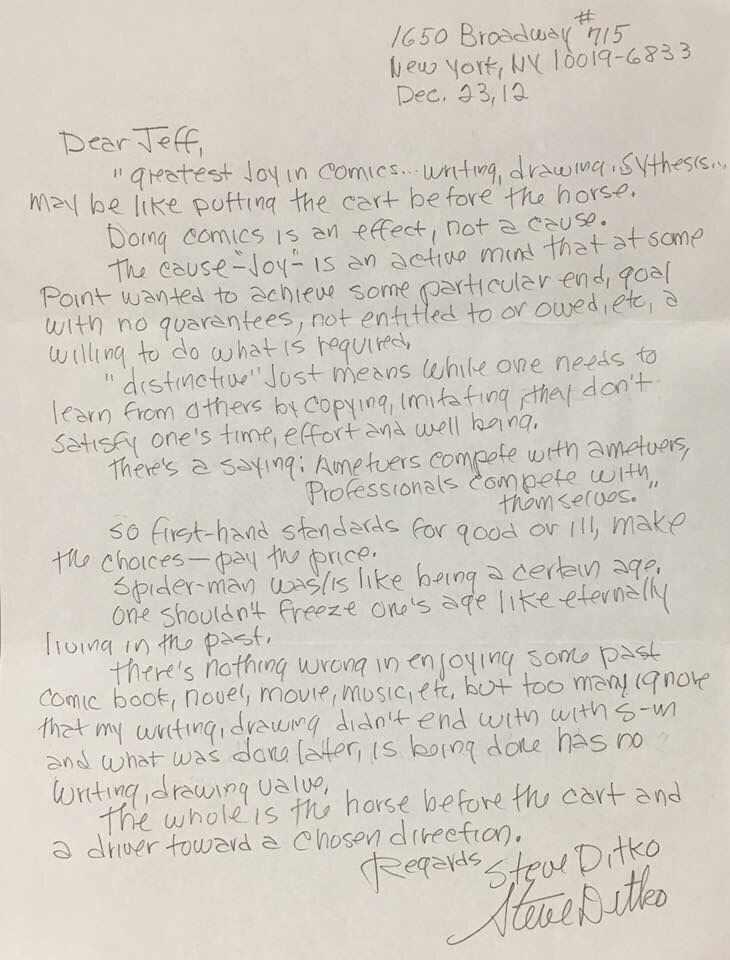 1650 Broadway #715
New York, NY 10019-6833
Dec. 23, 12
Dear Jeff,
"greatest Joy in comics... writing, drawing. sythesis...
may be like putting the cart before the horse.
Doing comics is an effect, not a cause.
The cause-"Joy"- is an active mind that at some
Point wanted to achieve some particular end, goal
with no guarantees, not entitled to or owed, etc, a
willing to do what is required.
"distinctive" Just means while one needs to
learn from others by copying, imitating, they don't
satisfy one's time, effort and well being.
There's a saying: Ametuers compete with ametuers,
Professionals compete with
themselves."
so first-hand standards for good or ill, make
the choices—pay the price.
Spider-man was/is like being a certain age.
One shouldn't freeze one's age like eternally
living in the past.
There's nothing wrong in enjoying some past
comic book, novel, movie, music, etc, but too many ignore
that my writing, drawing didn't end with with S-m
and what was done later, is being done has no
writing, drawing value.
The whole is the horse before the cart and
a driver toward a chosen direction.
Regards Steve Ditko
Steve Ditko